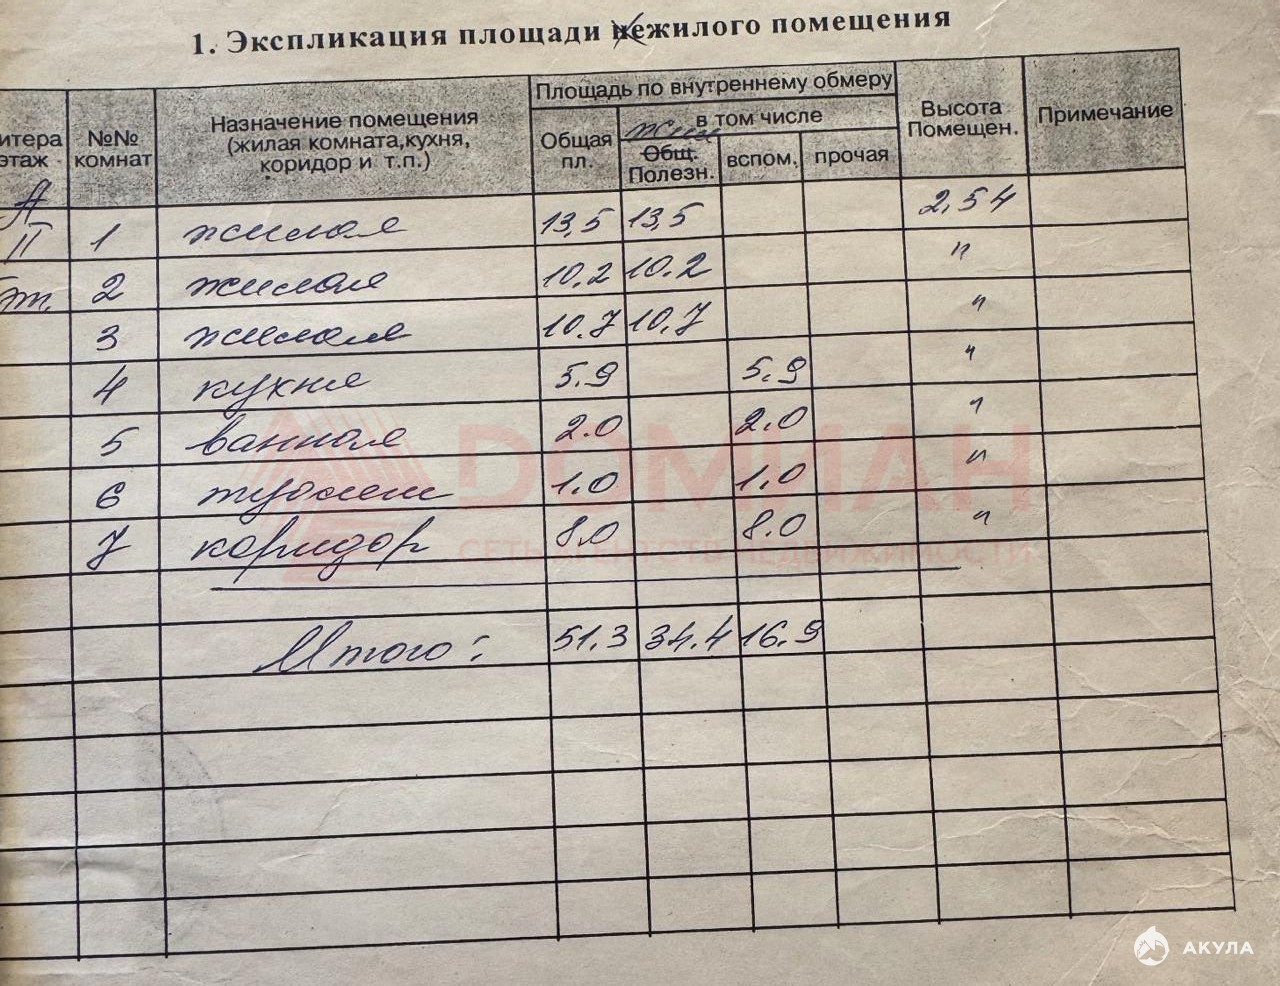 1. Экспликация площади нежилого помещения
итера этаж
№№ комнат
Назначение помещения (жилая комната,кухня, коридор и т.п.)
Площадь по внутреннему обмеру
Общая пл.
в том числе
жил
Общ. Полезн.
вспом.
прочая
Высота Помещен.
Примечание
А
II 1 жилая 13,5 13,5 2,54
эт. 2 жилая 10.2 10.2 "
3 жилая 10.7 10,7 "
4 кухня 5.9 5.9 "
5 ванная 2.0 2.0 "
6 туалет 1.0 1.0 "
7 коридор 8.0 8.0 "
Итого: 51.3 34.4 16.9
ДОМИАН
СЕТЬ АГЕНТСТВ НЕДВИЖИМОСТИ
АКУЛА